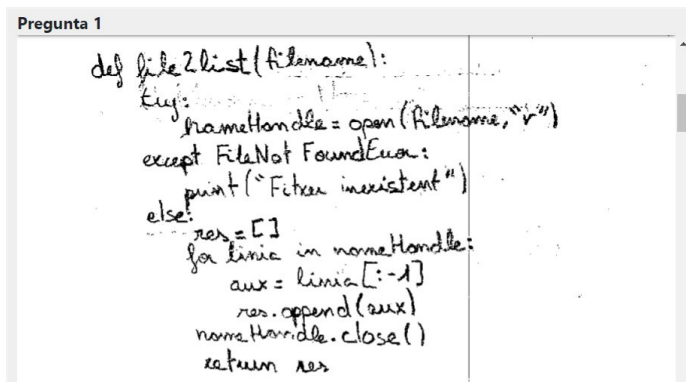 Pregunta 1
def file2list(filename):
try:
nameHandle = open(filename, "r")
except FileNotFoundError:
print("Fitxer inexistent")
else:
res = []
for linia in nameHandle:
aux = linia[:-1]
res.append(aux)
nameHandle.close()
return res